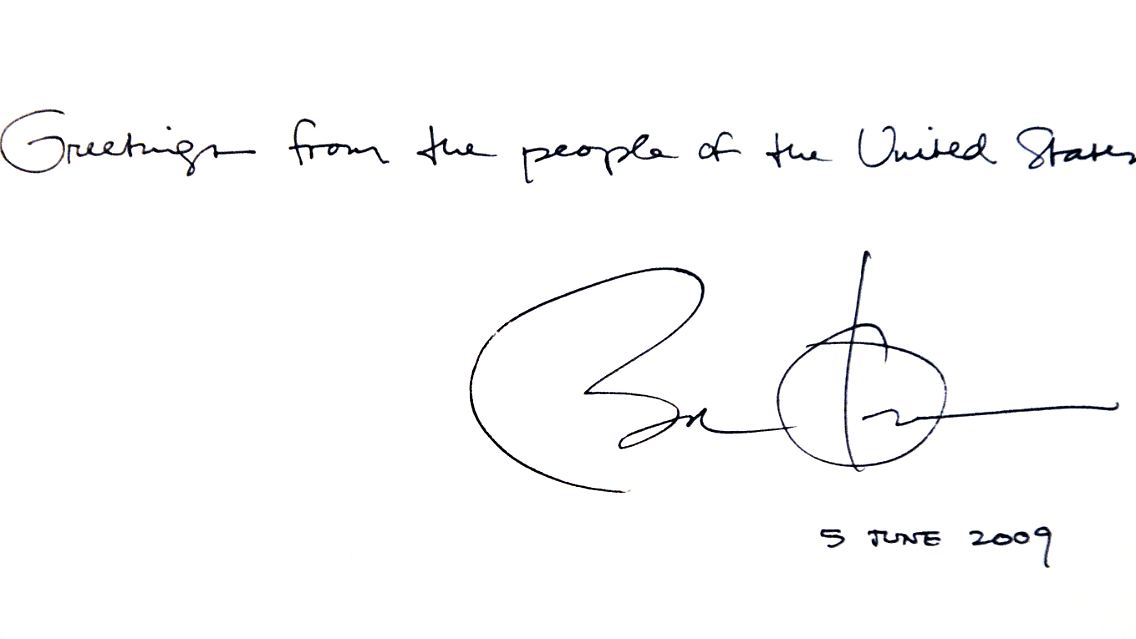 Greetings from the people of the United States
5 JUNE 2009